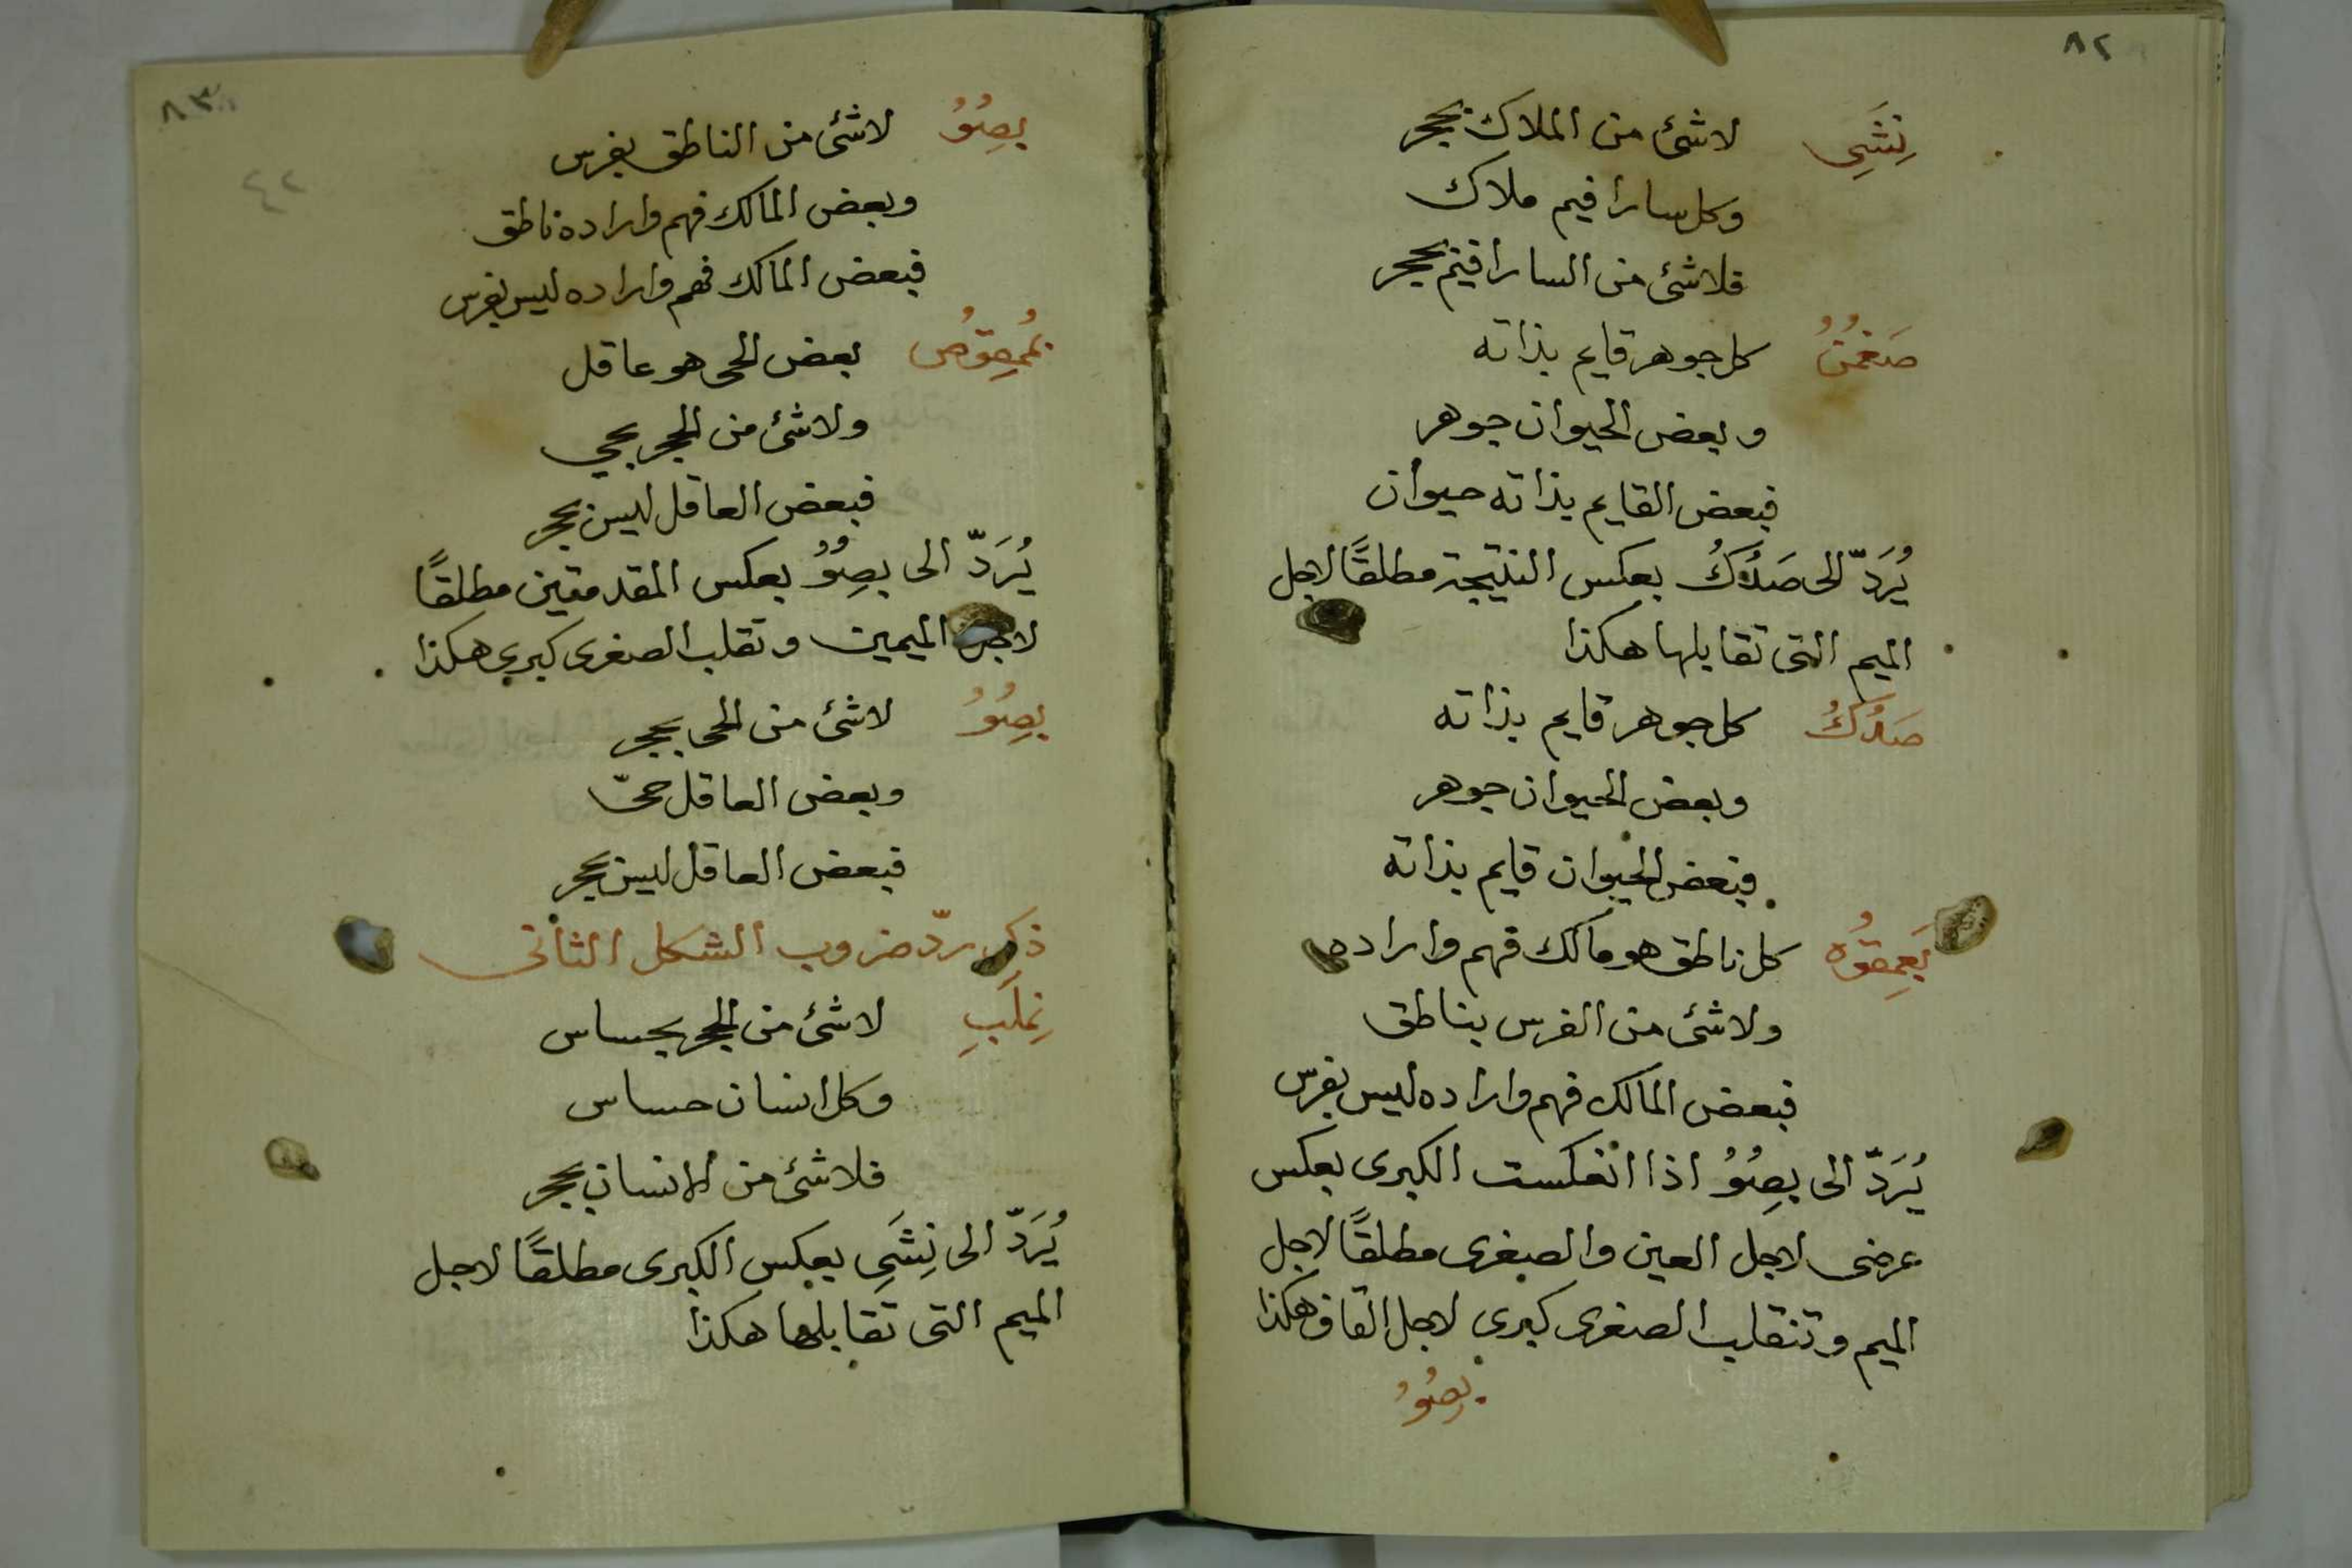 ٨٢
نِشَيِ لاشئ من الملاك بحجر
وكل سارافيم ملاك
فلاشئ من السارافيم بحجر
صَغمُنُ كل جوهر قايم بذاته
وبعض الحيوان جوهر
فبعض القايم بذاته حيوان
يُرَدّ الى صَدُكُ بعكس النتيجة مطلقًا لاجل
الميم التى تقابلها هكذا
صَدُكُ كل جوهر قايم بذاته
وبعض الحيوان جوهر
فبعض الحيوان قايم بذاته
يَعمِقوُه كل ناطق هو مالك فهم واراده
ولاشئ من الفرس بناطق
فبعض المالك فهم واراده ليس بفرس
يُرَدّ الى بِصُوُ اذا انعكست الكبرى بعكس
عرضى لاجل العين والصغرى مطلقًا لاجل
الميم وتنقلب الصغرى كبرى لاجل القاف هكذا
بِصُوُ
٨٣
٤٢
بِصُوُ لاشئ من الناطق بفرس
وبعض المالك فهم واراده ناطق
فبعض المالك فهم واراده ليس بفرس
بعض الحى هو عاقل
ولاشئ من الحجر بحي
فبعض العاقل ليس بحجر
يُرَدّ الى بِصُوُ بعكس المقدمتين مطلقًا
لاجل الميمين وتقلب الصغرى كبرى هكذا
بِصُوُ لاشئ من الحى بحجر
وبعض العاقل حىّ
فبعض العاقل ليس بحجر
ذكر ردّ ضروب الشكل الثانى
نِملَبِ لاشئ من الحجر بحساس
وكل انسان حساس
فلاشئ من الانسان بحجر
يُرَدّ الى نِشَيِ بعكس الكبرى مطلقًا لاجل
الميم التى تقابلها هكذا